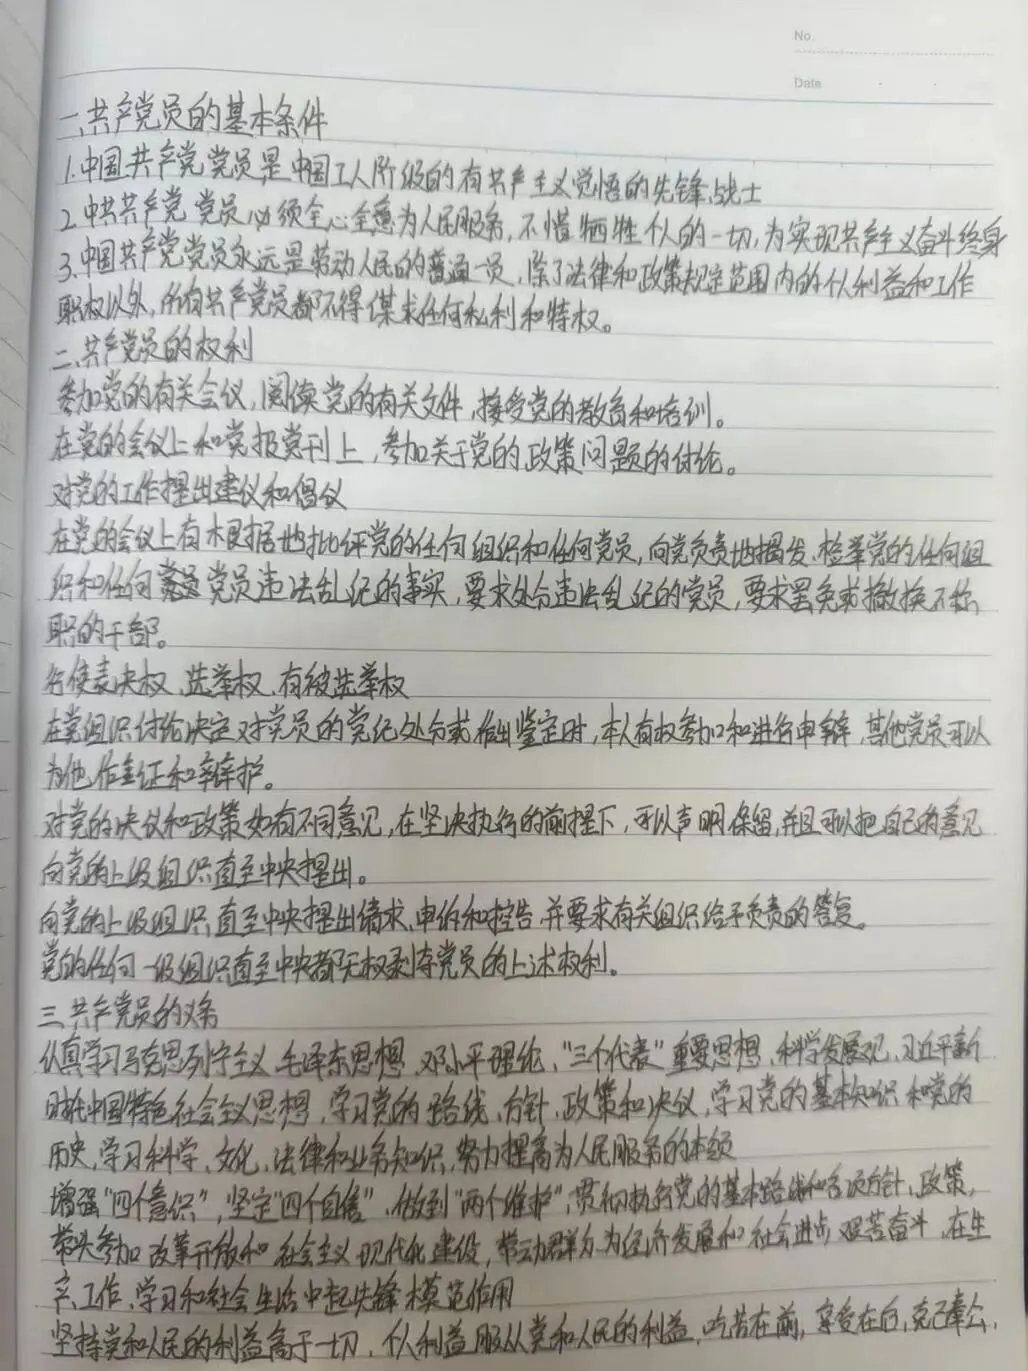 No.
Date
一、共产党员的基本条件
1.中国共产党党员是中国工人阶级的有共产主义觉悟的先锋战士
2.中共共产党党员必须全心全意为人民服务,不惜牺牲个人的一切,为实现共产主义奋斗终身
3.中国共产党党员永远是劳动人民的普通一员,除了法律和政策规定范围内的个人利益和工作
职权以外,所有共产党员都不得谋求任何私利和特权。
二、共产党员的权利
参加党的有关会议,阅读党的有关文件,接受党的教育和培训。
在党的会议上和党报党刊上,参加关于党的政策问题的讨论。
对党的工作提出建议和倡议
在党的会议上有根据地批评党的任何组织和任何党员,向党负责地揭发、检举党的任何组
织和任何党员违法乱纪的事实,要求处分违法乱纪的党员,要求罢免或撤换不称
职的干部。
行使表决权、选举权、有被选举权
在党组织讨论决定对党员的党纪处分或作出鉴定时,本人有权参加和进行申辩,其他党员可以
为他作证和辩护。
对党的决议和政策如有不同意见,在坚决执行的前提下,可以声明保留,并且可以把自己的意见
向党的上级组织直至中央提出。
向党的上级组织直至中央提出请求、申诉和控告,并要求有关组织给予负责的答复。
党的任何一级组织直至中央都无权剥夺党员的上述权利。
三、共产党员的义务
认真学习马克思列宁主义、毛泽东思想、邓小平理论、“三个代表”重要思想、科学发展观、习近平新
时代中国特色社会主义思想,学习党的路线、方针、政策和决议,学习党的基本知识和党的
历史,学习科学、文化、法律和业务知识,努力提高为人民服务的本领
增强“四个意识”,坚定“四个自信”、做到“两个维护”,贯彻执行党的基本路线和各项方针、政策,
带头参加改革开放和社会主义现代化建设,带动群众为经济发展和社会进步艰苦奋斗,在生
产、工作、学习和社会生活中起先锋模范作用
坚持党和人民的利益高于一切,个人利益服从党和人民的利益,吃苦在前,享受在后,克己奉公,